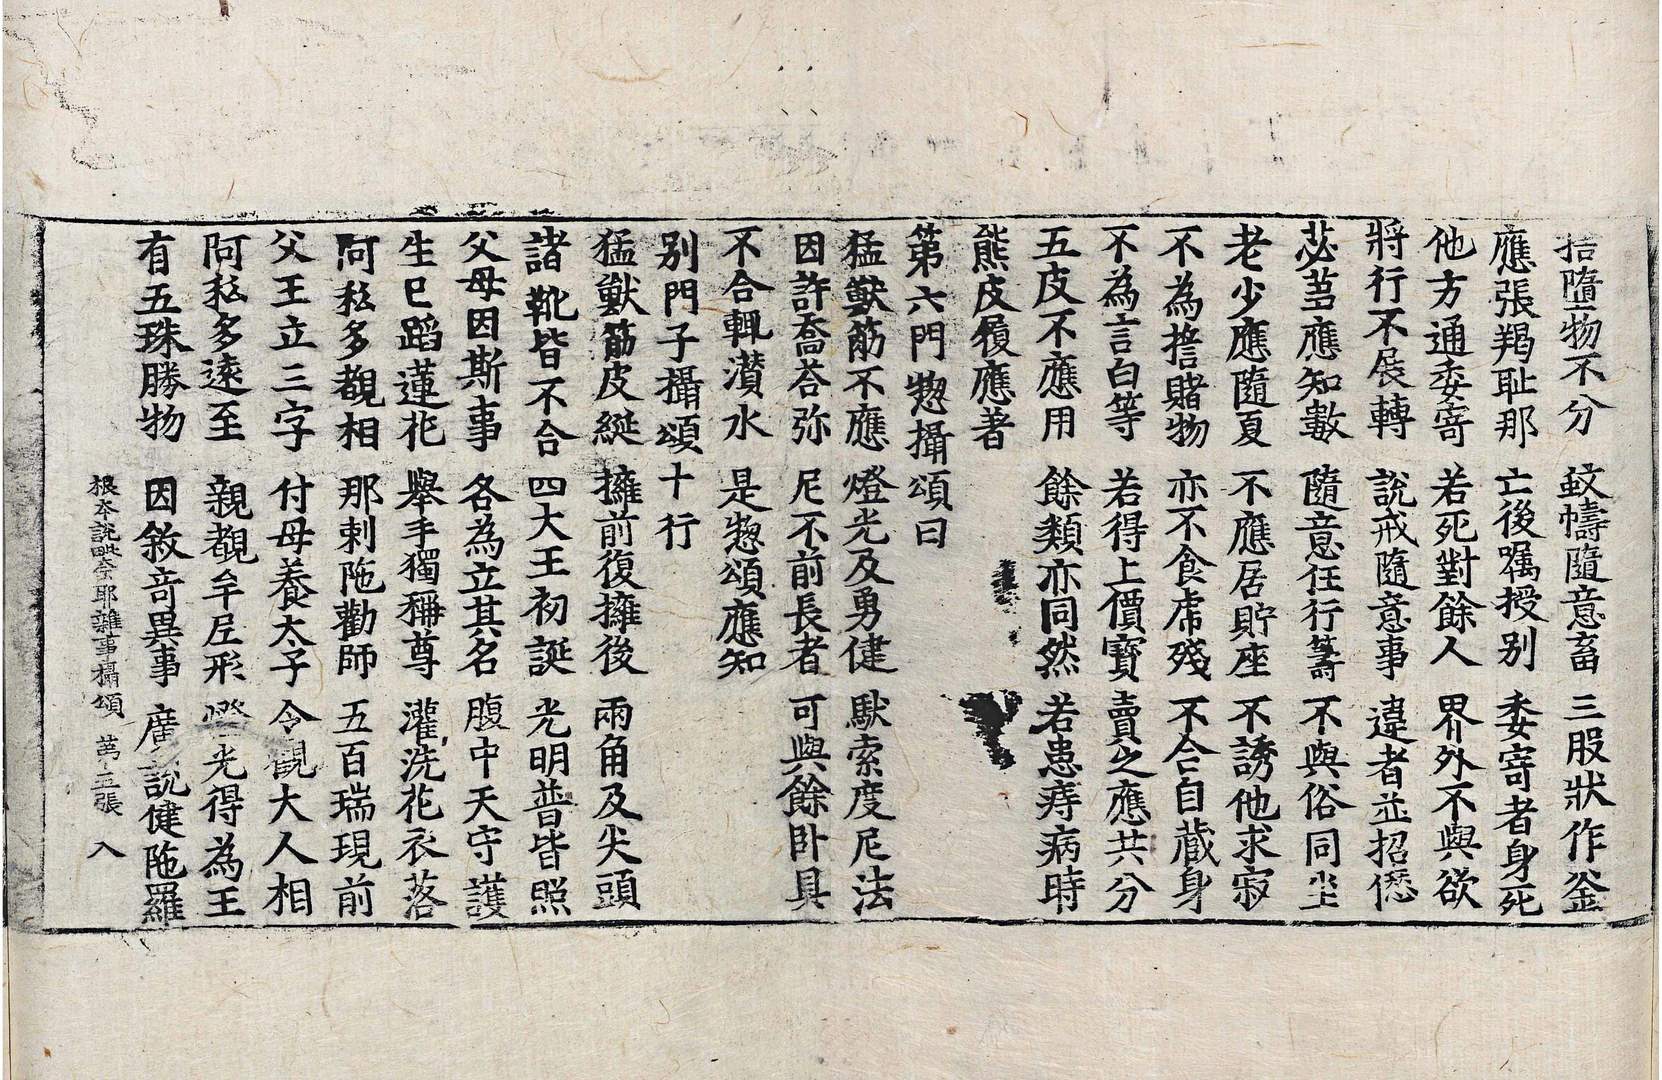 拈隨物不分 蚊幬隨意畜 三股狀作釜
應張羯恥那 亡後嘱授別 委寄者身死
他方通委寄 若死對餘人 界外不與欲
將行不展轉 說戒隨意事 違者並招愆
苾蒭應知數 隨意任行籌 不與俗同坐
老少應隨夏 不應居貯座 不誘他求寂
不為擔賭物 亦不食虎殘 不合自藏身
不為言白等 若得上價寶 賣之應共分
五皮不應用 餘類亦同然 若患痔病時
熊皮履應著
第六門惣攝頌曰
猛獸筋不應 燈光及勇健 馱索度尼法
因許喬荅弥 尼不前長者 可與餘卧具
不合輒濽水 是惣頌應知
別門子攝頌十行
猛獸筋皮綖 擁前復擁後 兩角及尖頭
諸靴皆不合 四大王初誕 光明普皆照
父母因斯事 各為立其名 腹中天守護
生已蹈蓮花 舉手獨稱尊 灌洗花衣落
阿私多覩相 那剌陁勸師 五百瑞現前
父王立三字 付母養太子 令覩大人相
阿私多遠至 親覩牟尼形 光得為王
有五珠勝物 因敘奇異事 廣說健陁羅
根本說毗奈耶雜事攝頌 苐五張 入